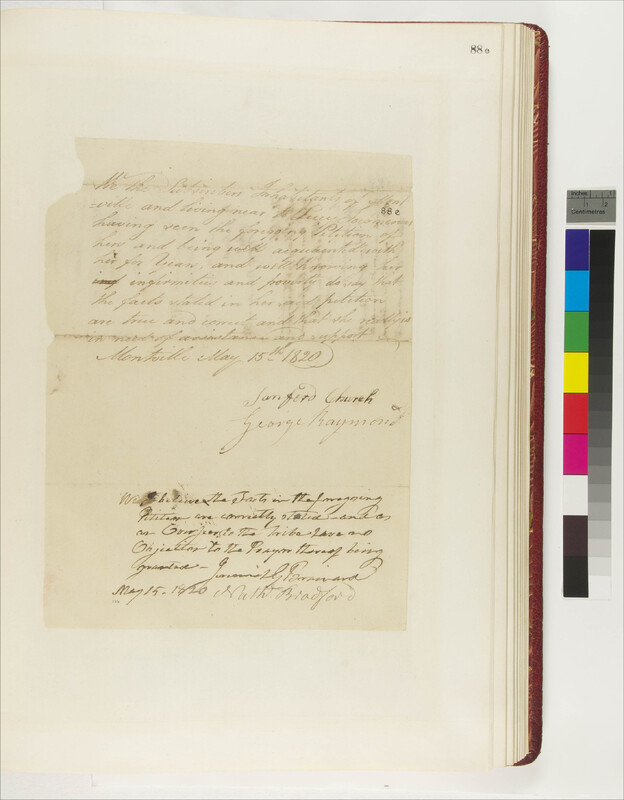 88e
We the
ville and living near
88e
having seen the foregoing Petition of
hers and being well acquainted with
her for years, and well knowing her
infirmities and poverty do say that
the facts stated in her said petition
are true and correct and that she
in need of assistance and support
Montville May 15th 1820
Sanford Church
George Raymond
We believe the Facts in the foregoing
Petition are correctly stated - and as
to the Tribe have no
Objection to the Prayer thereof being
granted -
May 15. 1820 Nath. Bradford